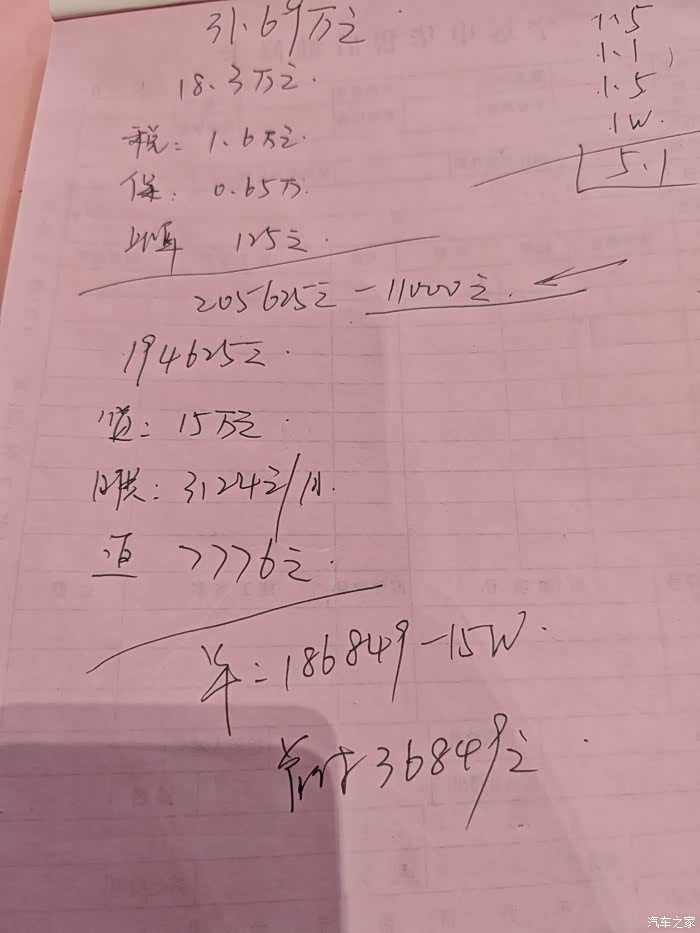 31.69万元
18.3万元.
税: 1.6万元.
保: 0.65万.
上牌 125元.
1.5
1.1
1.5
1W.
5.1
205625元 - 11000元.
194625元.
贷: 15万元.
月供: 3124元/月.
返 7776元.
车: 186849 - 15W.
首付 36849元
汽车之家